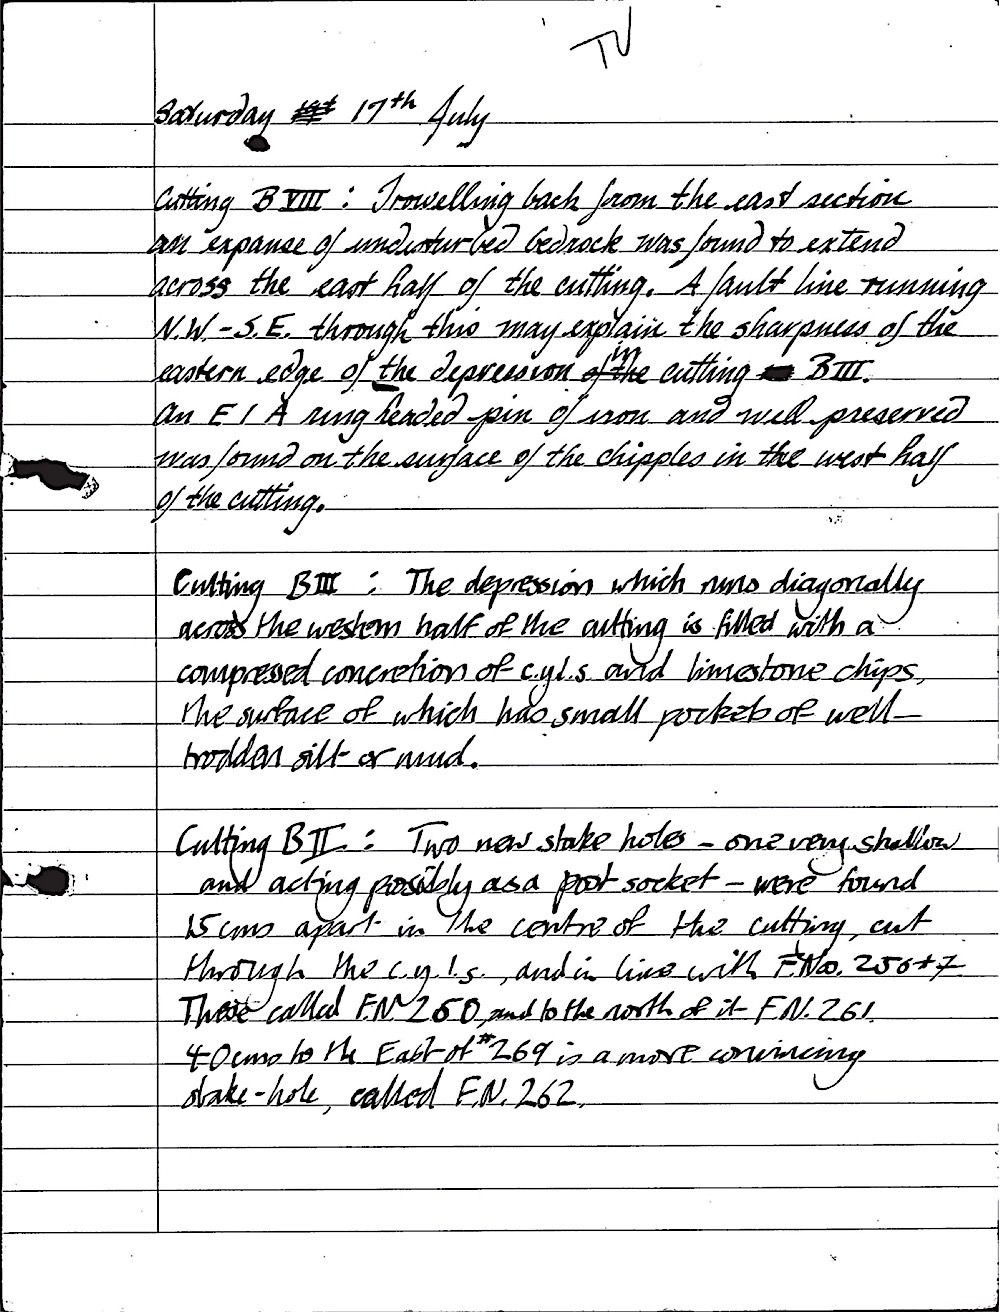 TV
Saturday 17th July
Cutting B VIII : Trowelling back from the east section
an expanse of undisturbed bedrock was found to extend
across the east half of the cutting. A fault line running
N.W.-S.E. through this may explain the sharpness of the
eastern edge of the depression in the cutting B III.
An E I A ring headed pin of iron and well preserved
was found on the surface of the chipples in the west half
of the cutting.
Cutting B III : The depression which runs diagonally
across the western half of the cutting is filled with a
compressed concretion of c.y.l.s. and limestone chips,
the surface of which has small pockets of well-
trodden silt or mud.
Cutting B II : Two new stake holes - one very shallow
and acting possibly as a post socket - were found
15 cms apart in the centre of the cutting, cut
through the c.y.l.s., and in line with F.Nos. 256+7
These called F.N° 260, and to the north of it F.N. 261.
40cms to the East of #269 is a more convincing
stake-hole, called F.N. 262.